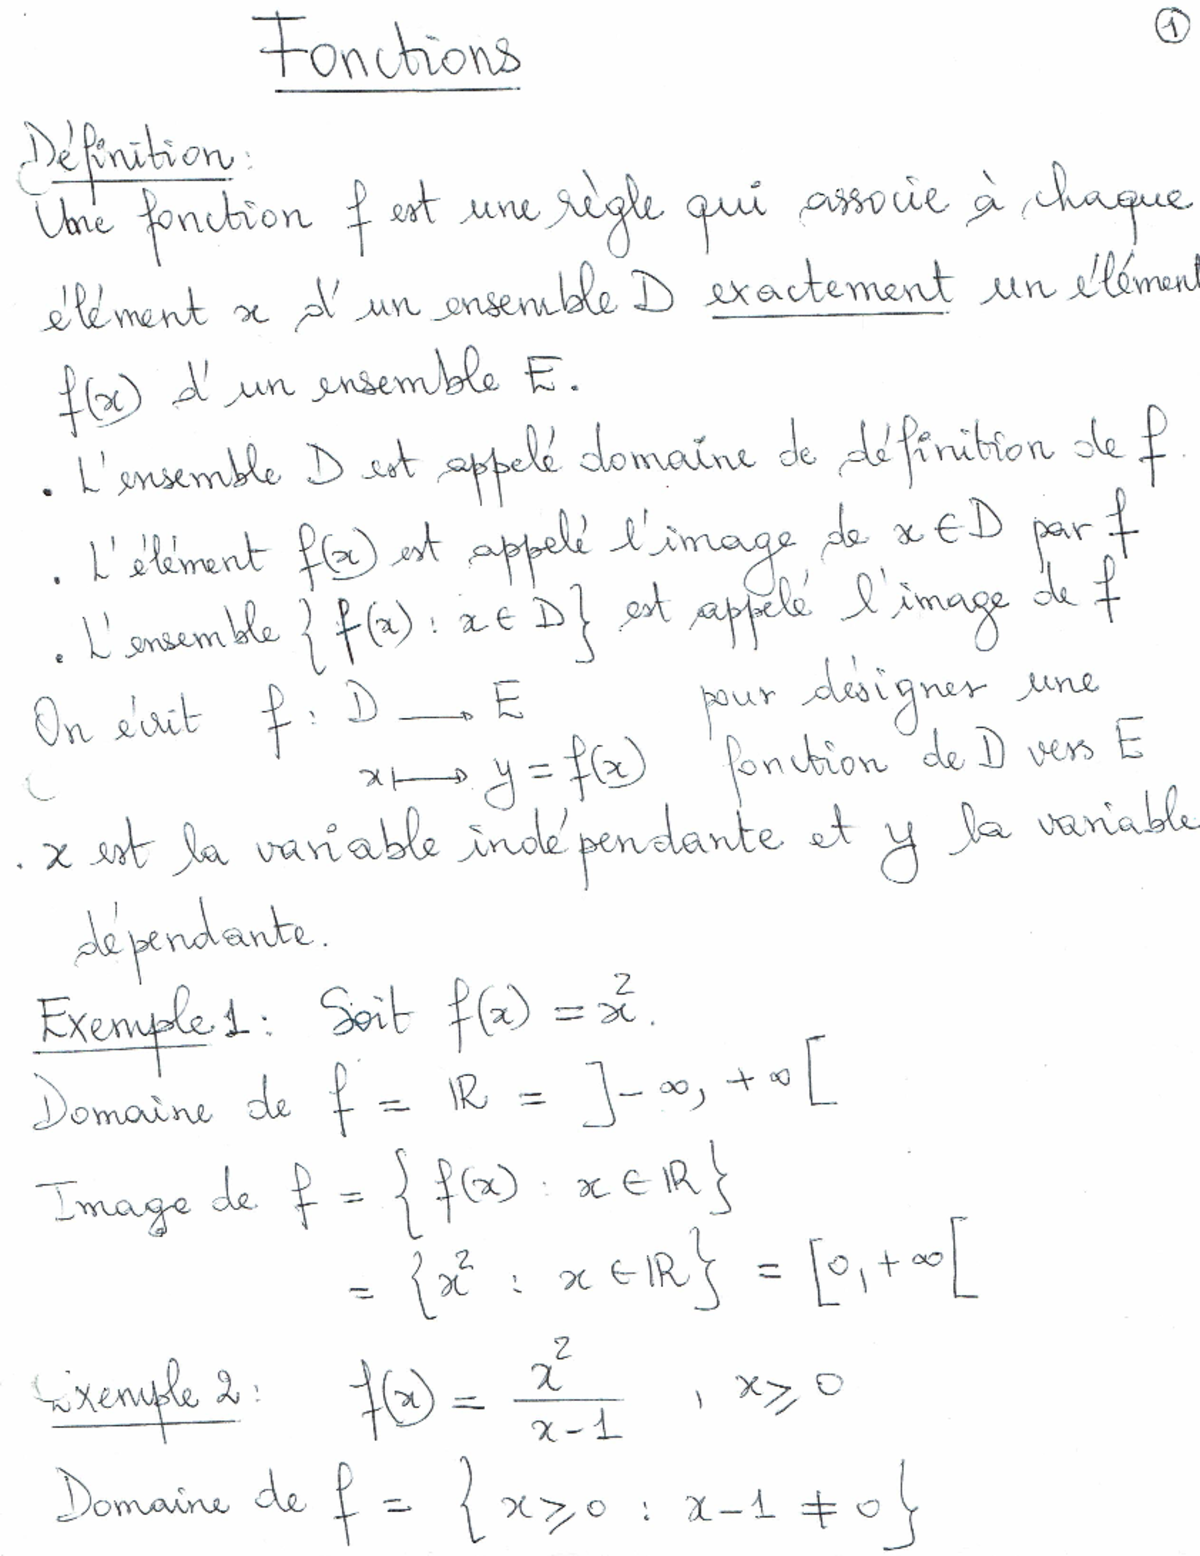 Fonctions
①
Définition:
Une fonction f est une règle qui associe à chaque
élément x d'un ensemble D exactement un élément
f(x) d'un ensemble E.
. L'ensemble D est appelé domaine de définition de f.
. L'élément f(x) est appelé l'image de x ∈ D par f
. L'ensemble {f(x) : x ∈ D} est appelé l'image de f
On écrit f : D ⟶ E pour désigner une
x ⟼ y = f(x) fonction de D vers E
. x est la variable indépendante et y la variable
dépendante.
Exemple 1 : Soit f(x) = x².
Domaine de f = ℝ = ]-∞, +∞[
Image de f = {f(x) : x ∈ ℝ}
= {x² : x ∈ ℝ} = [0, +∞[
Exemple 2 : f(x) = x²/(x-1) , x ⩾ 0
Domaine de f = {x ⩾ 0 : x-1 ≠ 0}